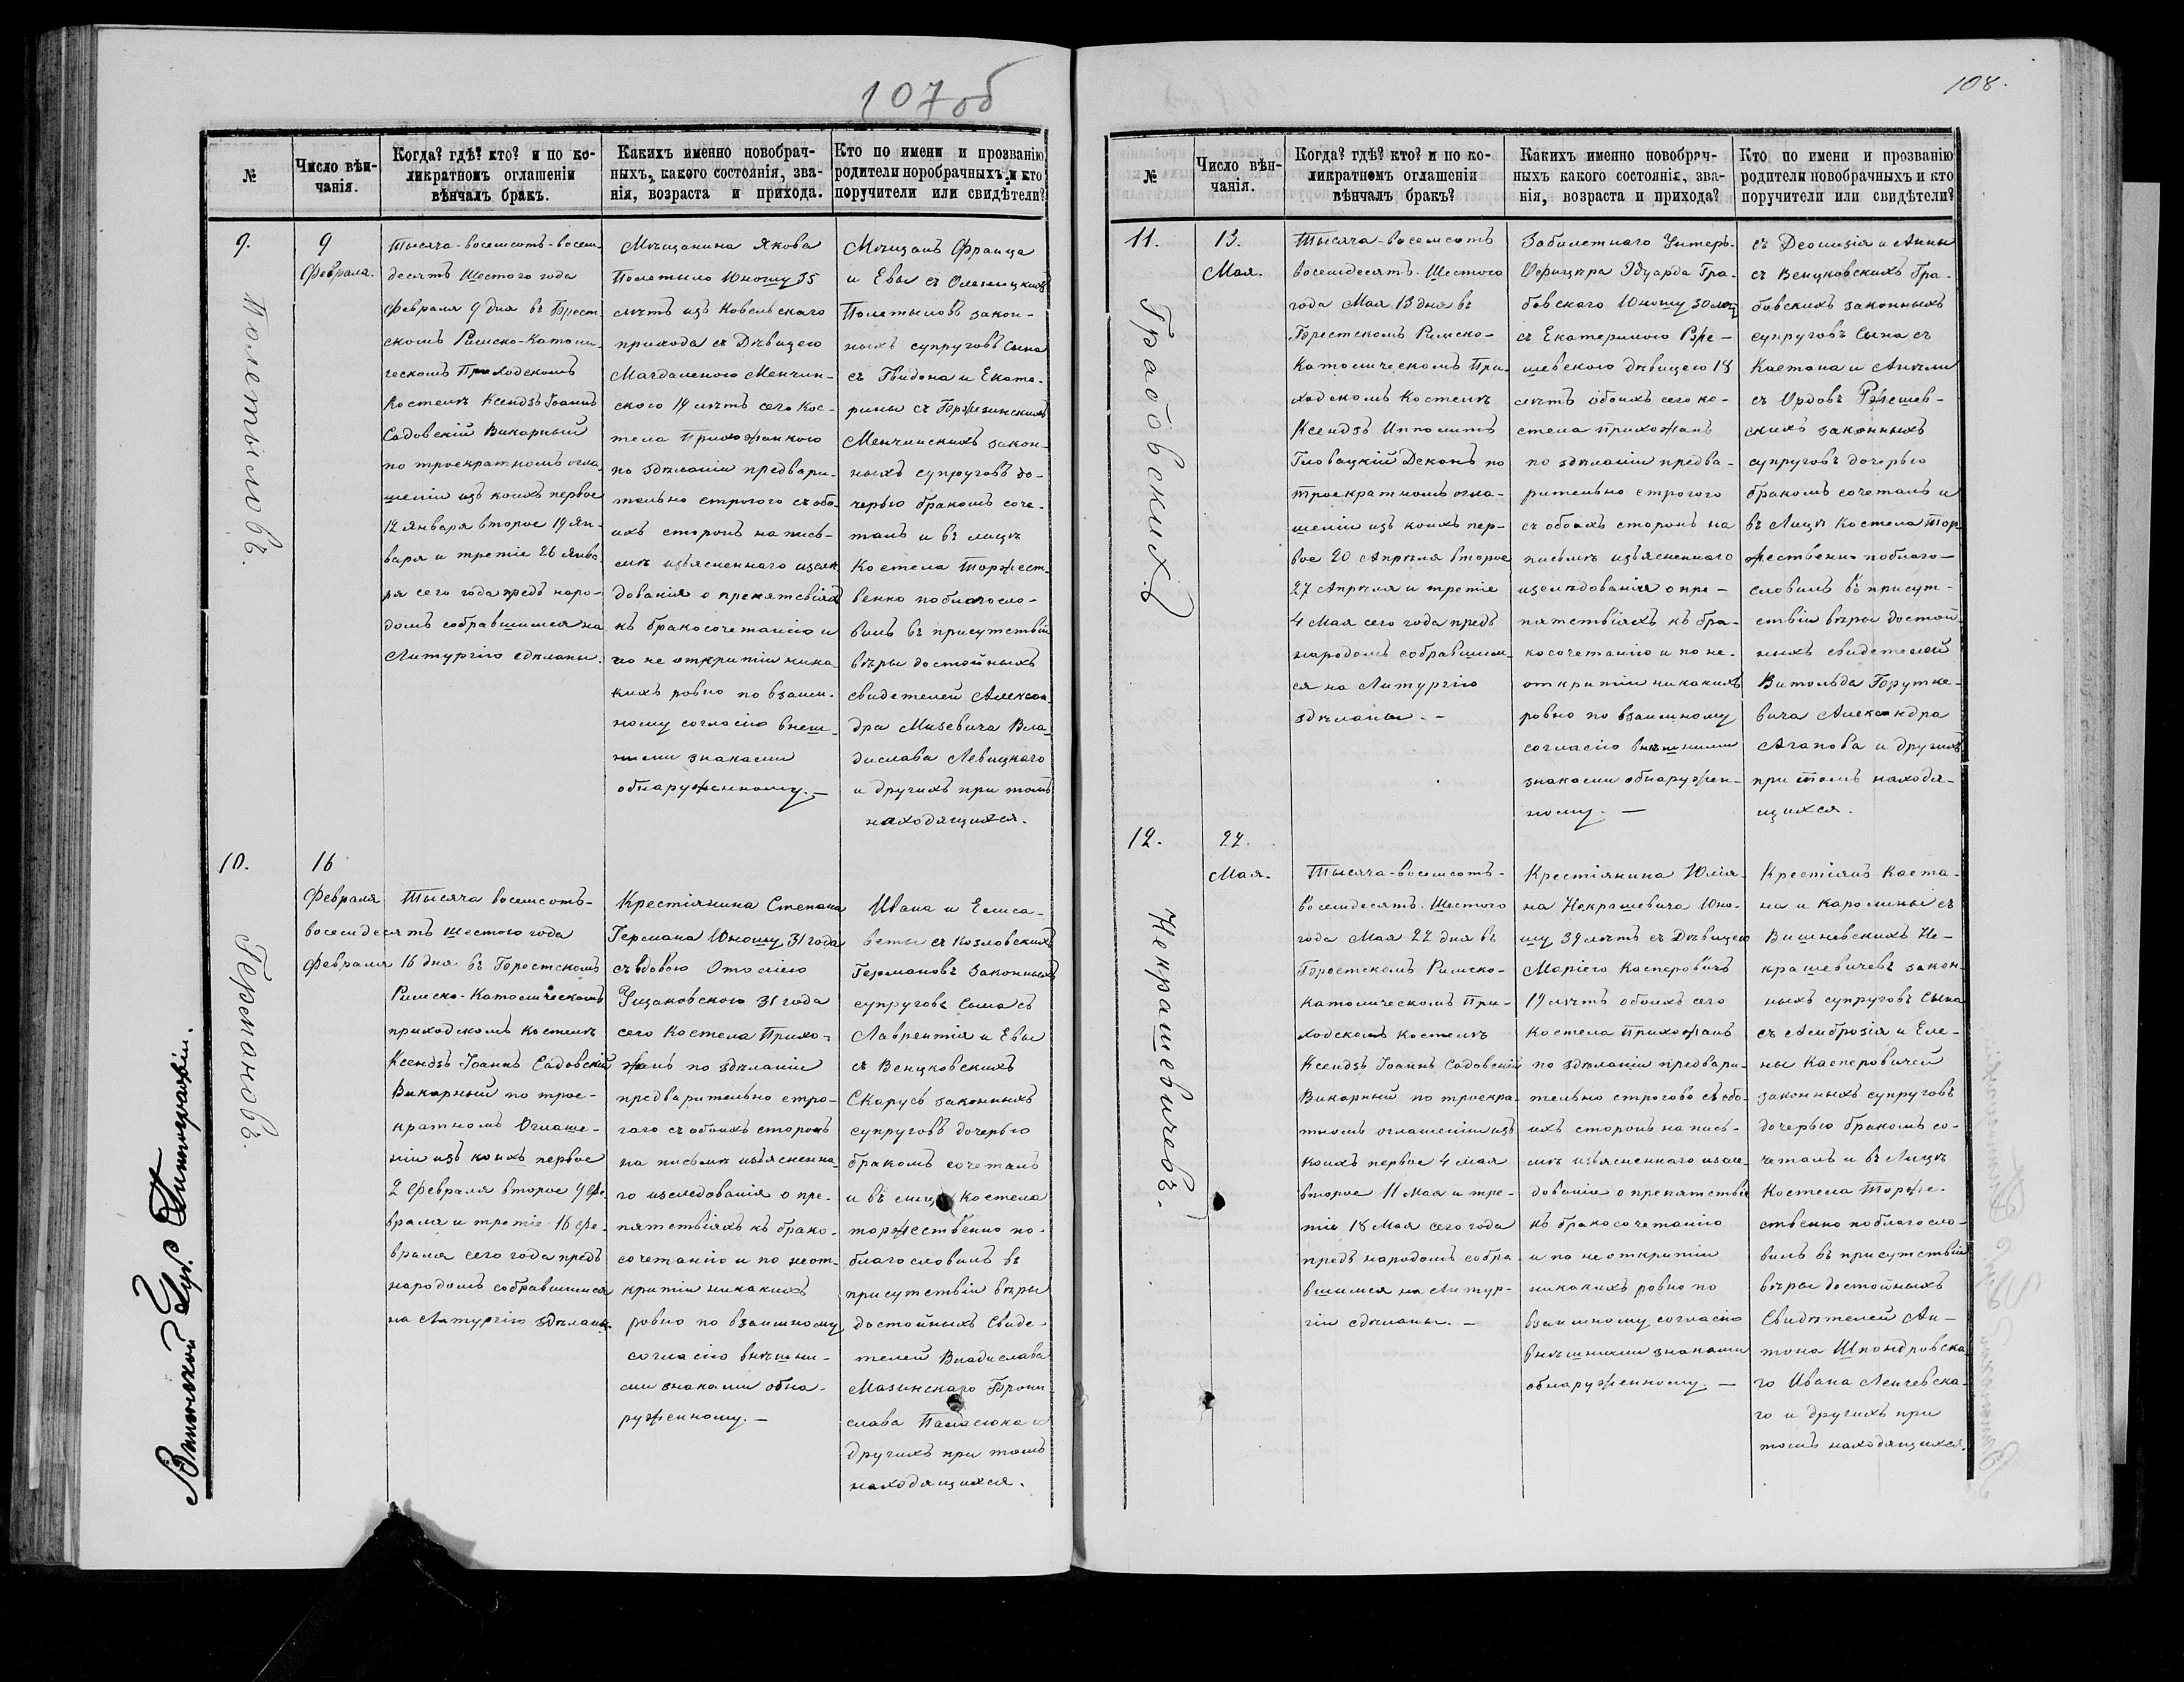 107 об
№
Число вѣн-
чанія.
Когда? гдѣ? кто? и по ко-
ликратномъ оглашеніи
вѣнчалъ бракъ.
Какихъ именно новобрач-
ныхъ, какого состоянія, зва-
нія, возраста и прихода.
Кто по имени и прозванію
родители норобрачныхъ и кто
поручители или свидѣтели?
9.
Полетыловъ.
9
Февраля.
Тысяча-восемсотъ-восем-
десятъ Шестого года
Февраля 9 дня въ Брест-
скомъ Римско-Католи-
ческомъ Приходскомъ
Костелѣ Ксендзъ Іоаннъ
Садовскій Викарный
по троекратномъ огла-
шеніи изъ коихъ первое
12 Января второе 19 Ян-
варя и третіе 26 Янва
ря сего года предъ наро-
домъ собравшимся на
Литургію сдѣланы.
Мѣщанина Якова
Полетыло Юношу 35
лѣтъ изъ Ковельскаго
прихода съ Дѣвицею
Магдаленою Менчин-
скою 19 лѣтъ сего Кос-
тела Прихожанкою
по здѣланіи предвари-
тельно строгого съ обо-
ихъ сторонъ на пись-
мѣ изъясненнаго изслѣ
дованія о препятсвіяхъ
къ бракосочетанію и
по не открытіи ника-
кихъ ровно по взаим-
ному согласію внеш-
ними знаками
обнаруженному. —
Мѣщанъ Франца
и Евы съ Оленицкихъ
Полетыловъ закон-
ныхъ супруговъ Сына
съ Гвидона и Екате-
рины съ Бржезинскихъ
Менчинскихъ закон-
ныхъ супруговъ до-
черью бракомъ соче-
талъ и въ лицѣ
Костела Торжест-
венно поблагосло-
вилъ въ присутствіи
вѣры достойныхъ
свидетелей Алексан
дра Мизевича Вла-
дислава Левицкаго
и другихъ при томъ
находящихся.
10.
Германовъ.
16
Февраля
Тысяча восемсотъ-
восемдесятъ шестого года
Февраля 16 дня въ Брестскомъ
Римско-Католическомъ
приходскомъ костелѣ
Ксендзъ Іоаннъ Садовскій
Викарный по трое-
кратномъ Оглаше-
ніи изъ коихъ первое
2 Февраля второе 9 Фе-
враля и третіе 16 Фе-
враля сего года предъ
народомъ собравшимся
на Литургію здѣланы.
Крестіянина Степана
Германа Юношу 31 года
съ вдовою Отолією
Ущаковскою 31 года
сего Костела Прихо-
жанъ по здѣланіи
предварительно стро-
гаго съ обоихъ сторонъ
на письмѣ изъясненна-
го изследованія о пре-
пятствіяхъ къ брако-
сочетанію и по неот-
крытіи никакихъ
ровно по взаимному
согласію внѣшни-
ми знаками обна-
руженному. —
Ивана и Елиса-
веты съ Козловскихъ
Германовъ Законныхъ
супруговъ Сына съ
Лаврентія и Евы
съ Венцковскихъ
Скарусь законныхъ
супруговъ дочерью
бракомъ сочеталъ
и въ лицѣ Костела
торжественно по-
благословилъ въ
присутствіи вѣры
достойныхъ Свиде-
телей Владислава
Мазинскаго Брони-
слава Панасюка и
другихъ при томъ
находящихся.
Виленской Губ. Типографіи.
108.
№
Число вѣн-
чанія.
Когда? гдѣ? кто? и по ко-
ликратномъ оглашеніи
вѣнчалъ бракъ?
Какихъ именно новобрач-
ныхъ какого состоянія, зва-
нія, возраста и прихода?
Кто по имени и прозванію
родители новобрачныхъ и кто
поручители или свидѣтели?
11.
Грабовскихъ
13.
Мая.
Тысяча-восемсотъ
восемдесятъ. Шестого
года Мая 13 дня въ
Брестскомъ Римско-
Католическомъ При-
ходскомъ Костелѣ
Ксендзъ Ипполитъ
Гловацкій Деканъ по
троекратномъ огла-
шеніи изъ коихъ пер-
вое 20 Апрѣля второе
27 Апрѣля и третіе
4 Мая сего года предъ
народомъ собравшим-
ся на Литургію
здѣланы. -
Забилетнаго Унтеръ-
Офицера Эдуарда Гра-
бовского Юношу 30 лѣтъ
съ Екатериною Рже-
шевскою дѣвицею 18
лѣтъ обоихъ сего ко-
стела прихожанъ
по здѣланіи предва-
рительно строгого
съ обоихъ сторонъ на
письмѣ изъясненнаго
изслѣдованія о пре-
пятствіяхъ къ бра-
косочетанію и по не-
открытіи никакихъ
ровно по взаимному
согласію внѣшними
знаками обнаружен-
ному. —
съ Деонизія и Анны
съ Венцковскихъ Гра-
бовскихъ законныхъ
супруговъ Сына съ
Каетана и Анели
съ Ордовъ Ржешев-
скихъ законныхъ
супруговъ дочерью
бракомъ сочеталъ и
въ Лицѣ Костела Тор-
жественно поблаго-
словилъ въ присут-
ствіи вѣры достой-
ныхъ свидетелей
Витольда Груткe-
вича Александра
Агапова и другихъ
при томъ находя-
щихся.
12.
Некрашевичевъ.
22.
Мая.
Тысяча-восемсотъ-
восемдесятъ. Шестого
года Мая 22 дня въ
Брестскомъ Римско-
католическомъ При-
ходскомъ костелѣ
Ксендзъ Іоаннъ Садовскій
Викарный по троекра-
тномъ оглашеніи изъ
коихъ первое 4 мая
второе 11 Мая и тре-
тіе 18 Мая сего года
предъ народомъ собра-
вшимся на Литур-
гіи сдѣланы. —
Крестіянина Юлія-
на Некрашевича Юно-
шу 39 лѣтъ съ Дѣвицею
Маріею Касперовичъ
19 лѣтъ обоихъ сего
Костела прихожанъ
по здѣланіи предвари-
тельно строгово съ обо-
ихъ сторонъ на пись-
мѣ изъясненнаго изслѣ-
дованія о препятствіи
къ бракосочетанію
и по не открытіи
никакихъ ровно по
взаимному согласію
внѣшними знаками
обнаруженному. —
Крестіянъ Каета-
на и Каролины съ
Вишневскихъ Не-
крашевичевъ закон-
ныхъ супруговъ Сына
съ Амброзія и Еле-
ны Касперовичей
законныхъ супруговъ
дочерью бракомъ со-
четалъ и въ Лицѣ
Костела Торже-
ственно поблагосло-
вилъ въ присутствіи
вѣры достойныхъ
Свидѣтелей Ан-
тона Шпондровска-
го Ивана Ленчевска-
го и другихъ при
томъ находящихся.